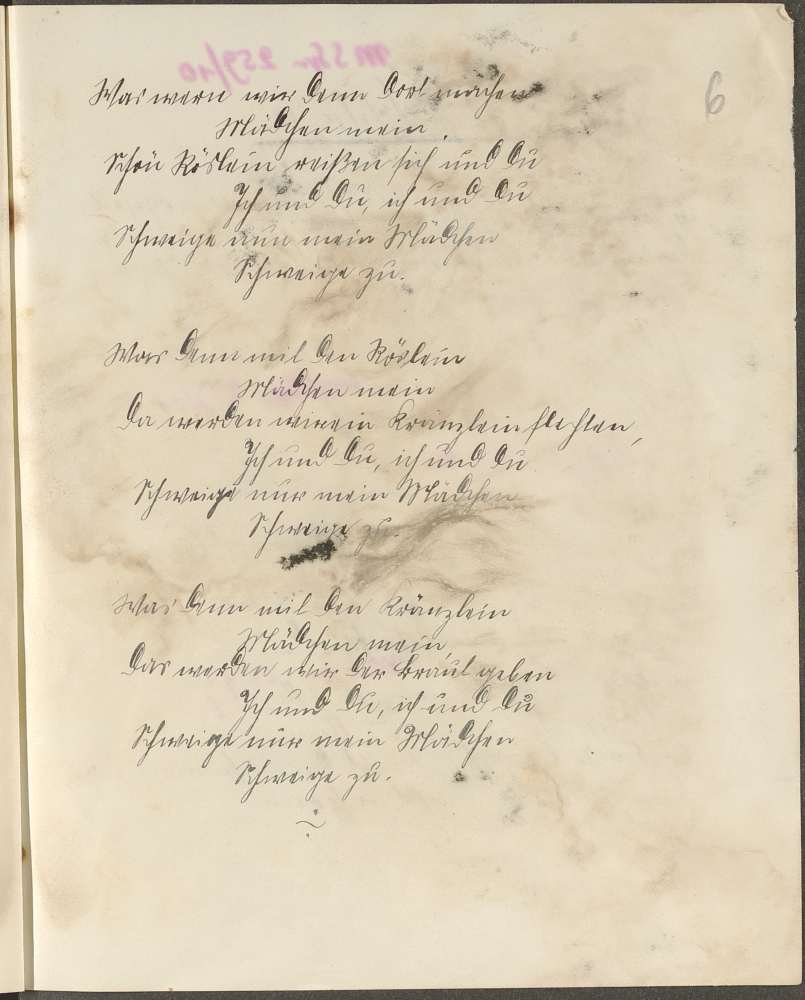 6
Was wern wir denn dort machen
Mädchen mein,
Schön Röslein reißen ich und du
Ich und Du, ich und Du
Schweige nur mein Mädchen
Schweige zu.
Was denn mit den Röslein
Mädchen mein
Da werden wir ein Kränzlein flechten,
Ich und Du, ich und Du
Schweige nur mein Mädchen
Schweige zu.
Was denn mit den Kränzlein
Mädchen mein,
Das werden wir der Braut geben
Ich und Du, ich und Du
Schweige nur mein Mädchen
Schweige zu.